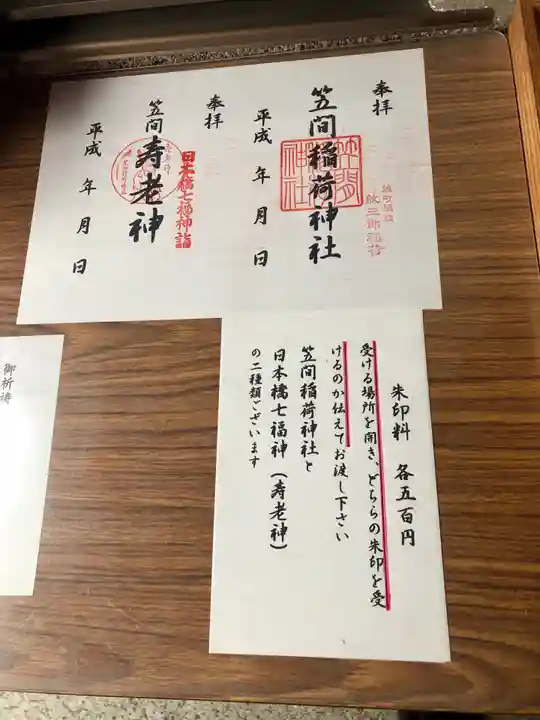 奉拝
笠間稲荷神社
平成 年 月 日
紋三郎稲荷
奉拝
笠間 寿老神
日本橋七福神詣
平成 年 月 日
朱印料 各五百円
受ける場所を開き、どちらの朱印を受
けるのか伝えてお渡し下さい
笠間稲荷神社と
日本橋七福神(寿老神)
の二種類ございます
御祈祷